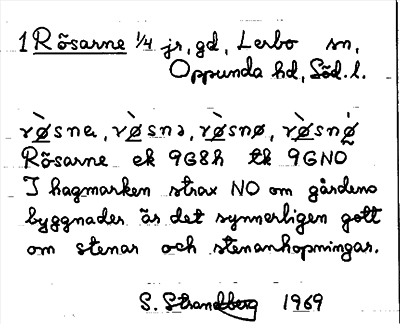 1 Rösarne 1/4 jr, gd, Lerbo sn,
Oppunda hd, Söd. l.
rø̀sna, rø̀snɔ, rø̀snø, rø̀snǿ̣
Rösarne ek 9G8h tk 9GNO
I hagmarken strax NO om gårdens
byggnader är det synnerligen gott
om stenar och stenanhopningar.
S. Strandberg 1969